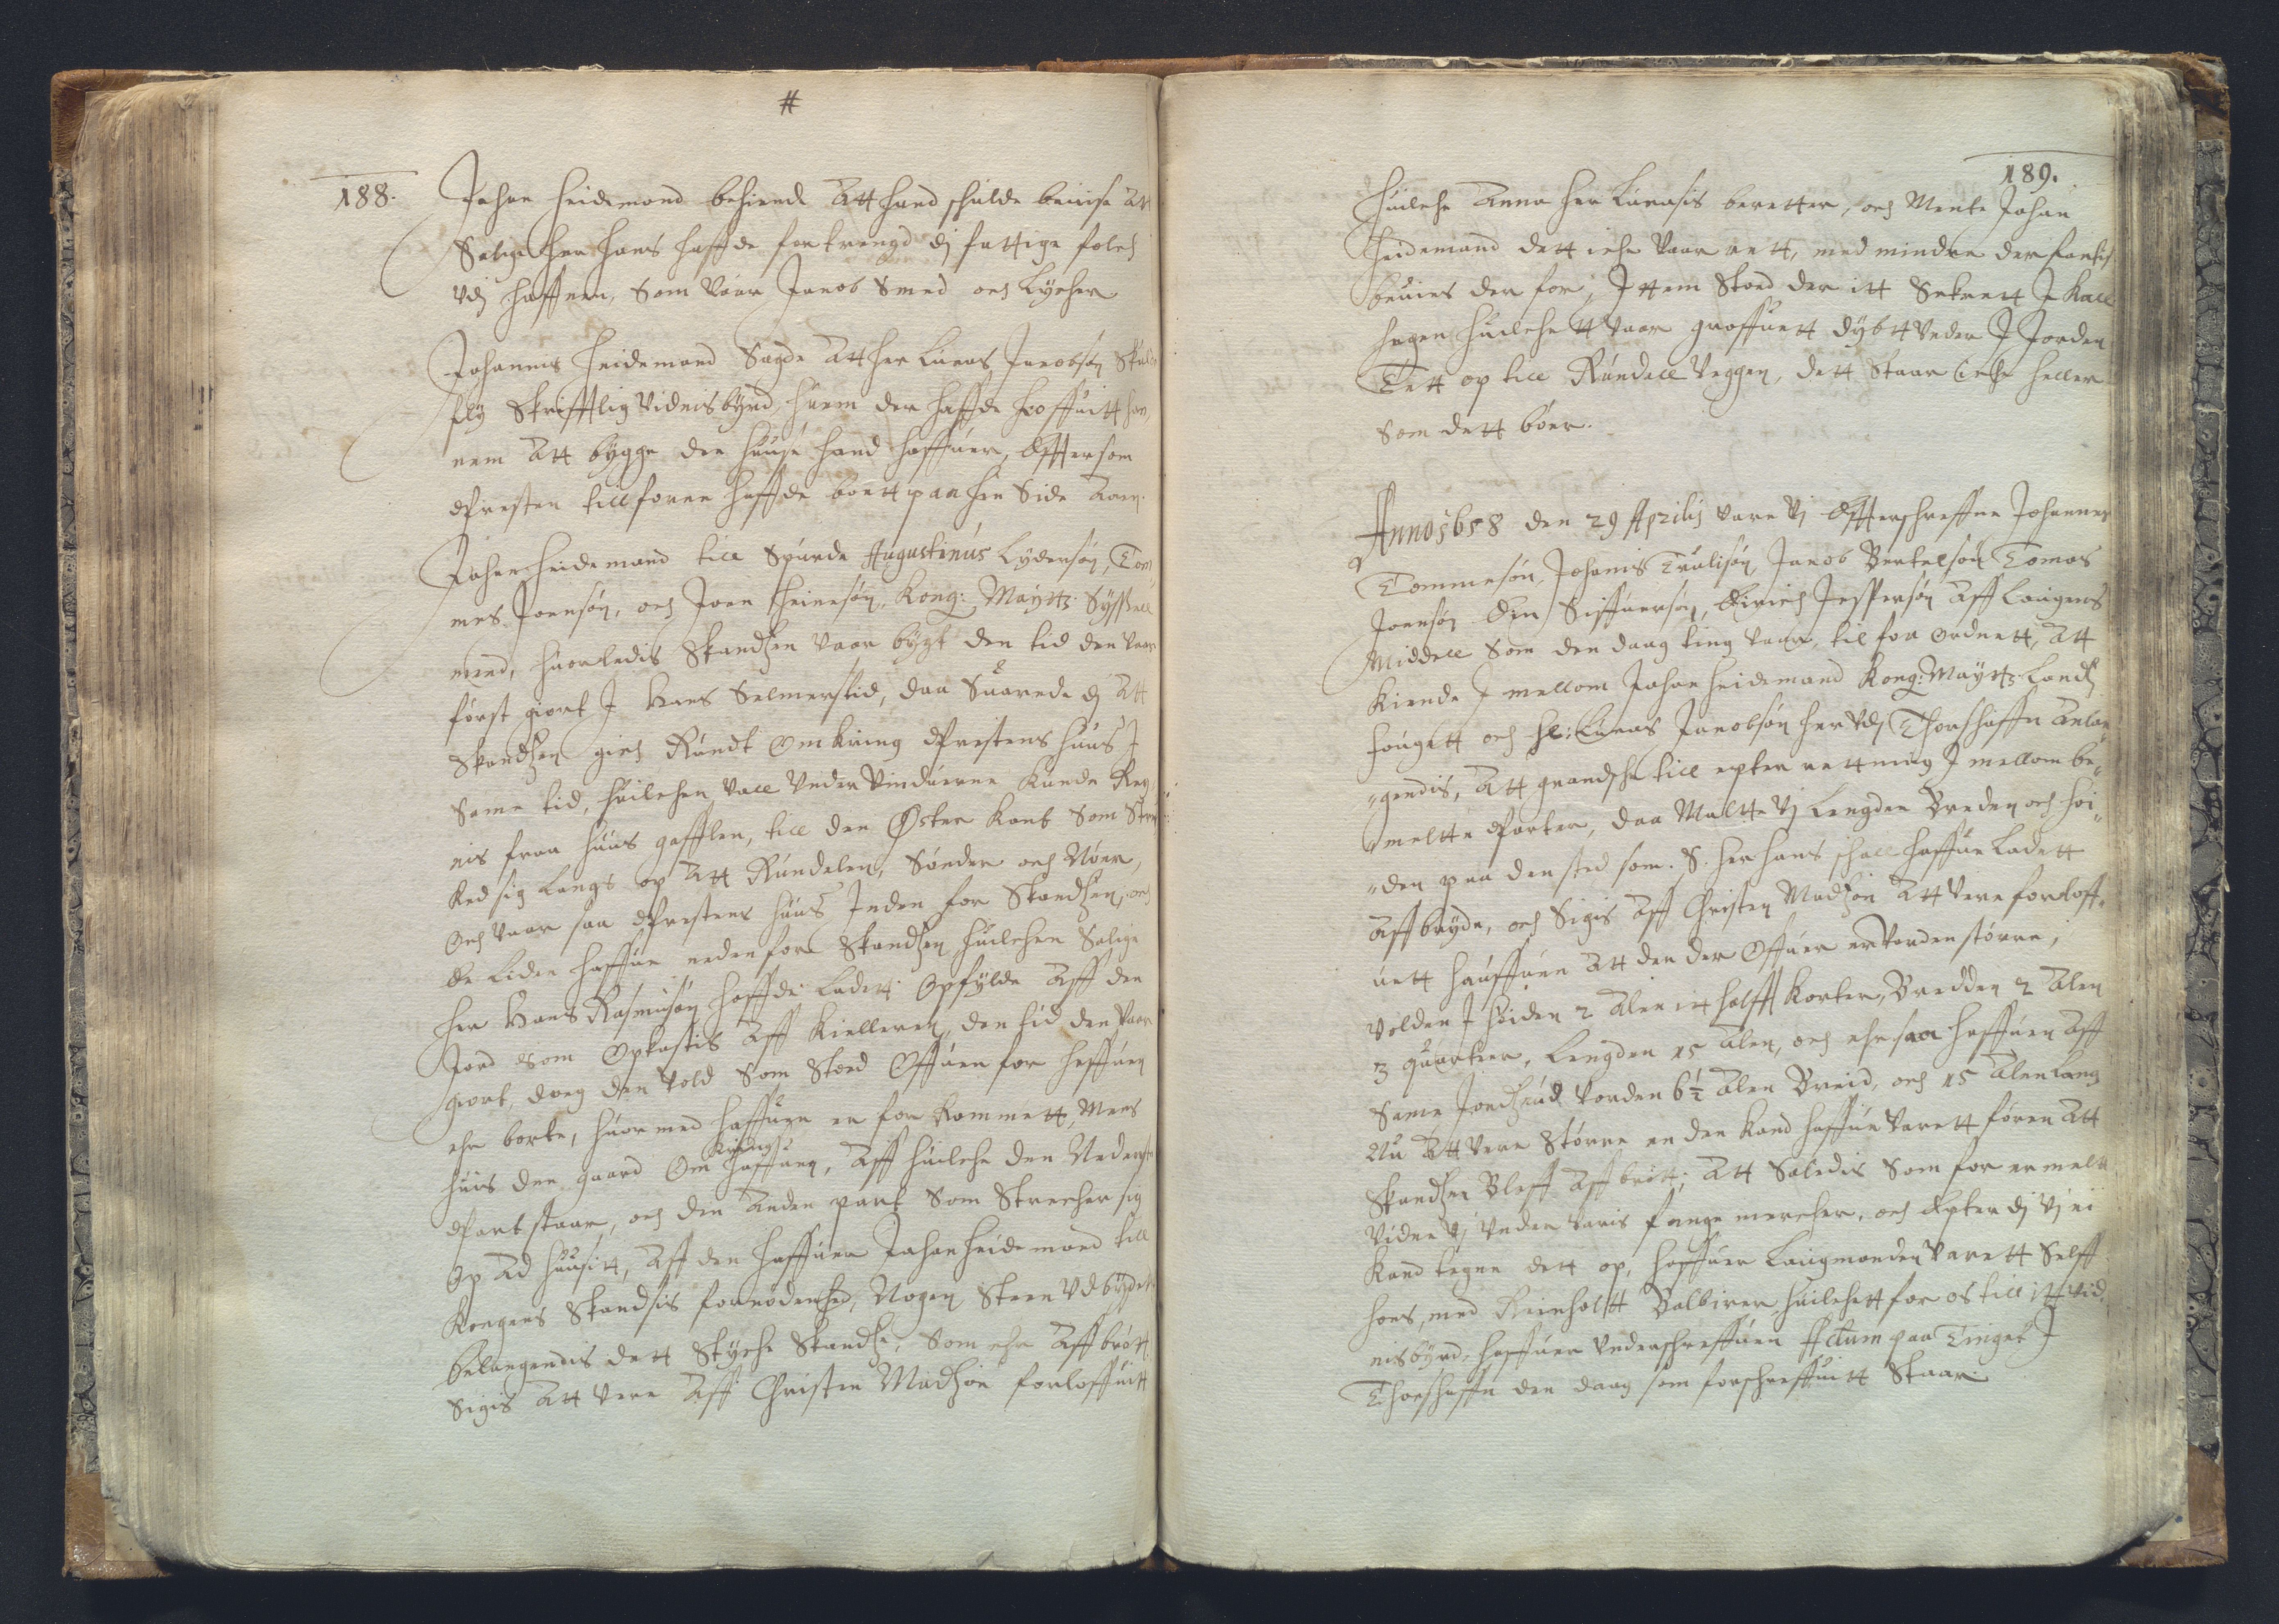 #
188.
Johan Heidemand behiende Att hand schulde beuise Att
Salige Her Hans haffde fortrengd dj fattige folch
Vdj Haffnen, Som Vaar Jacob Smed och Lycher
Johannes Heidemand Sagde Att Her Lucas Jacobsøn Skulde
fly Skrifftlig Vidnisbyrd, huem der haffde
nem Att bygge der huuse hand haffuer, Effttersom
Presten till forne haffde boett paa hin Side Aaen.
Johan Heidemand till Spurde Augustinus Lydersøn, Tom,
mes Joensøn, och Joen Heinesøn, Kong: Maytts. Sysell
mend, huorledis Skandtzen Vaar bygt den tid den Vaar
først giort I Hans Selmerstid, daa Suarede dj Att
Skandtzen gich Rundt Omkring Prestens huus I
Same tid, huilchen Vall Vnder Vinduerne kunde
nis fraa huus gafflen, till den Øster Kant Som
ked sig Langs op Att Rundelen, Sønder och Nør,
Och Vaar saa Prestens huus Inden for Skandtzen, och
de Liden haffue neden for Skandtzen huilchen Salige
Her Hans Rasmusøn haffde Ladett Opfylde Aff den
Jord som Opkastis Aff Kielleren, den tid den Vaar
giort, dog den Vold Som Stod Offuen for haffuen
ehr borte, huormed haffuen er for kommett, Mens
huis den gaard Om kring haffuen, Aff huilche den Nederste
Part staar, och den Anden part Som Strecher sig
Op Ad huusitt, Aff den haffuer Johan Heidemand till
Kongens Skandsis fornødenhed, Nogen Steen Vdbydet
belangendis dett Styche Skandtze, Som ehr Aff brøtt
Sigis Att Vere Aff Christen Madtzøn forloffuitt
189.
Huilche Anna Her Lucasis beretter, och Mente Johan
Heidemand dett iche Vaar rett, med mindre der
beuies der for, Jttem Stod der itt Sekrett I Kaell
hagen huilchett Vaar groffuett dybtt Vnder I Jorden
Tett op till Rundell Veggen, dett Staar iche heller
Som dett bøer.
Anno 1658 den 29 Aprilis Vare Vj Effterschreffne Johannes
Tommesøn, Johanis Trulisøn, Jacob Bertelsøn Tomas
Joensøn Siffuersøn, Eirich Jesspersøn Aff Laugens
Middell Som den daag ting Vaar, til for Ordnett, Att
Kiende I mellom Johan Heidemand Kong: Maytts Landtz
fougett och Hl: Lucas Jacobsøn her Vdj Thorshaffn Anlan„
„gendis, Att grandsche till epter rettning I mellom be„
„meltte Parter, daa Maltte Vj Lengden Breden och høi„
„den paa den sted som. S. Her Hans schall haffue Ladett
Affbryde, och Sigis Aff Christen Madtzøn Att Vere forloff„
uett hauffuen Att den der Offuer er Vorden større,
Volden I høiden 2 Alen itt halfft Korter, Bredden 2 Alen
3 quarteer, Lengden 15 Alen, och ehr saa haffuen Aff
Same Vorden 6½ Alen Breid, och 15 Alen Lang
Nu Att Vere Større en den Kand haffue Varett føren Att
Skandtzen Bleff Aff brøtt; Att Saledis Som for er melt
Vidner Vj Vnder Voris fange mercher, och Epter dj Vj ei
Kand tegne dett op, haffuer Laugmanden Varett Selff
hoes, med Reinholtt Balbirer huilchett for os till itt Vid„
nisbyrd, haffuer Vnderschreffuen Actum paa Tinget I
Thorshaffn den daag som forschreffuitt Staar.